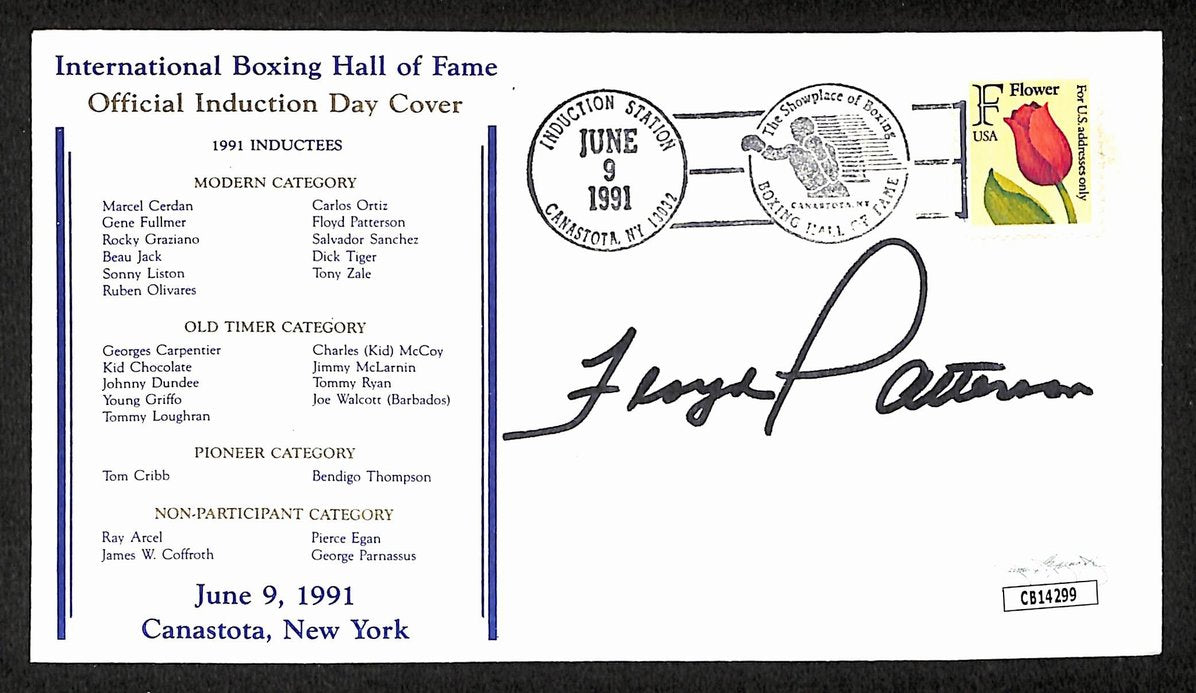 International Boxing Hall of Fame
Official Induction Day Cover
1991 INDUCTEES
MODERN CATEGORY
Marcel Cerdan
Gene Fullmer
Rocky Graziano
Beau Jack
Sonny Liston
Ruben Olivares
Carlos Ortiz
Floyd Patterson
Salvador Sanchez
Dick Tiger
Tony Zale
OLD TIMER CATEGORY
Georges Carpentier
Kid Chocolate
Johnny Dundee
Young Griffo
Tommy Loughran
Charles (Kid) McCoy
Jimmy McLarnin
Tommy Ryan
Joe Walcott (Barbados)
PIONEER CATEGORY
Tom Cribb
Bendigo Thompson
NON-PARTICIPANT CATEGORY
Ray Arcel
James W. Coffroth
Pierce Egan
George Parnassus
June 9, 1991
Canastota, New York
INDUCTION STATION
JUNE
9
1991
CANASTOTA, NY 13032
The Showplace of Boxing
CANASTOTA, NY
BOXING HALL OF FAME
F
Flower
USA
For U.S. addresses only
Floyd Patterson
CB14299